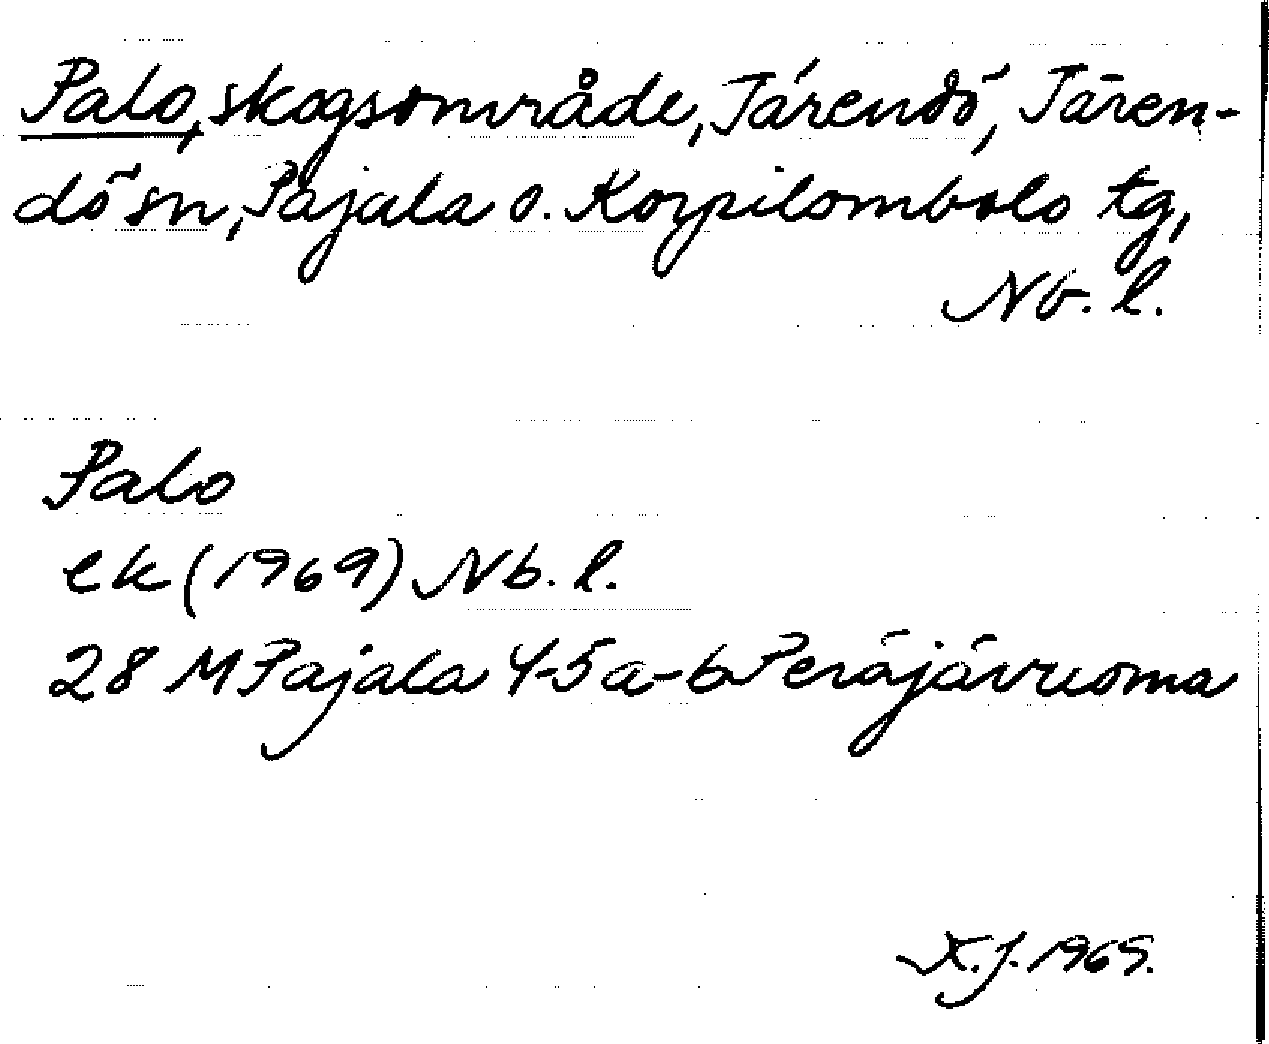 Palo, skogsområde, Tärendö, Tären-
dö sn, Pajala o. Korpilombolo tg,
Nb. l.
Palo
ek (1969) Nb. l.
28 M Pajala 4-5 a-b Peräjävuoma
K.J. 1969.